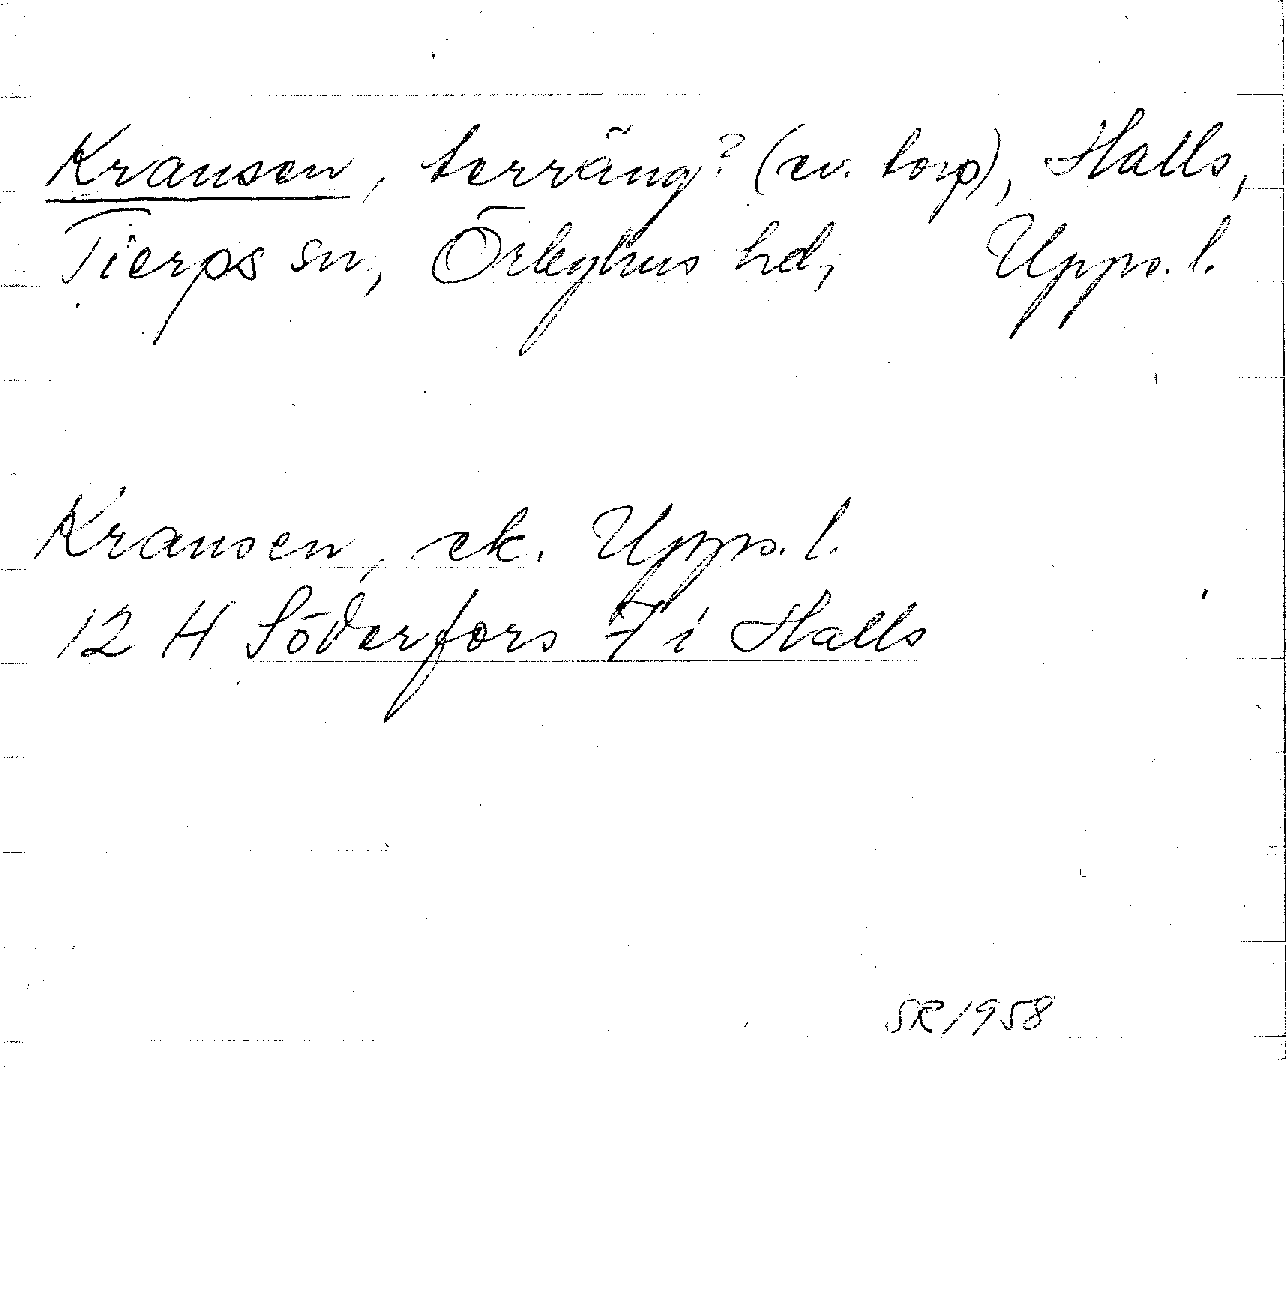 Kransen, terräng? (ev. torp), Halls,
Tierps sn, Örbyhus hd, Upps. l.
Kransen, ek. Upps. l.
12 H Söderfors 7 i Halls
SR 1958